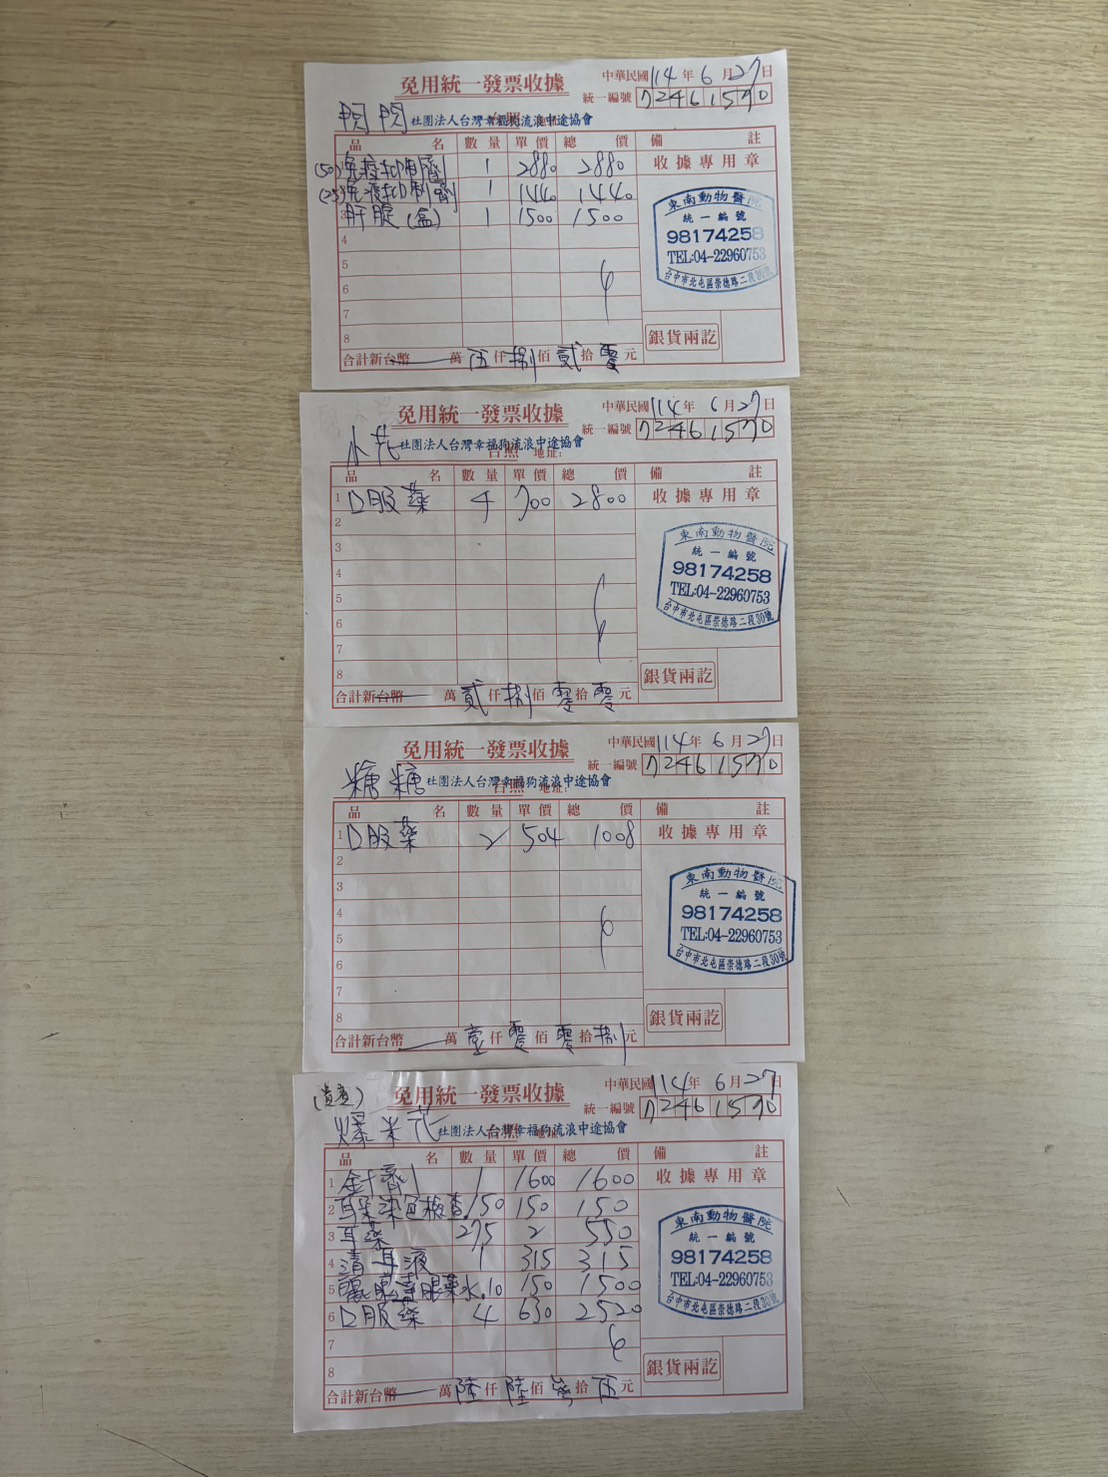 免用統一發票收據
中華民國114年6月27日
統一編號 72461570
閃閃 社團法人台灣幸福狗流浪中途協會
品名 數量 單價 總價 備註
(50)免疫抑制劑 1 2880 2880 收據專用章
(25)免疫抑制劑 1 1440 1440
3 肝腚(盒) 1 1500 1500
4
5
6
7
8
東南動物醫院
統一編號
98174258
TEL:04-22960753
台中市北屯區崇德路二段30號
銀貨兩訖
合計新台幣 萬伍仟捌佰貳拾零元
免用統一發票收據
中華民國114年6月27日
統一編號 72461570
小花 社團法人台灣幸福狗流浪中途協會
台照 地址:
品名 數量 單價 總價 備註
1 口服藥 4 700 2800 收據專用章
2
3
4
5
6
7
8
東南動物醫院
統一編號
98174258
TEL:04-22960753
台中市北屯區崇德路二段30號
銀貨兩訖
合計新台幣 萬貳仟捌佰零拾零元
免用統一發票收據
中華民國114年6月27日
統一編號 72461570
糖糖 社團法人台灣幸福狗流浪中途協會
台照 地址:
品名 數量 單價 總價 備註
1 口服藥 2 504 1008 收據專用章
2
3
4
5
6
7
8
東南動物醫院
統一編號
98174258
TEL:04-22960753
台中市北屯區崇德路二段30號
銀貨兩訖
合計新台幣 萬壹仟零佰零拾捌元
免用統一發票收據
中華民國114年6月27日
統一編號 72461570
爆米花 社團法人台灣幸福狗流浪中途協會
品名 數量 單價 總價 備註
1 針劑 1 1600 1600 收據專用章
2 耳朵染色檢查 150 150 150
3 耳藥 275 2 550
4 清耳液 1 315 315
5 眼藥水 10 150 1500
6 口服藥 4 630 2520
7
8
東南動物醫院
統一編號
98174258
TEL:04-22960753
台中市北屯區崇德路二段30號
銀貨兩訖
合計新台幣 萬陸仟陸佰拾伍元